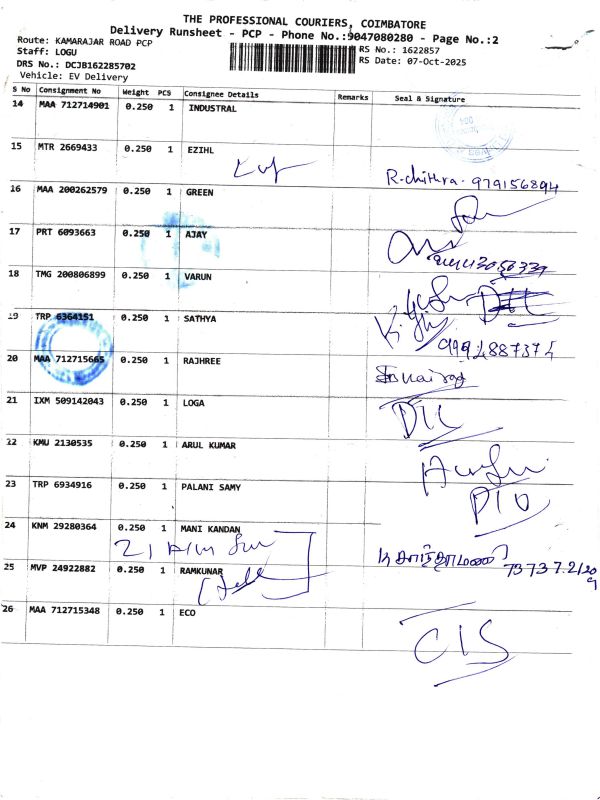 THE PROFESSIONAL COURIERS, COIMBATORE
Delivery Runsheet - PCP - Phone No.:9047080280 - Page No.:2
Route: KAMARAJAR ROAD PCP
RS No.: 1622857
Staff: LOGU
RS Date: 07-Oct-2025
DRS No.: DCJB162285702
Vehicle: EV Delivery
S No Consignment No Weight PCS Consignee Details Remarks Seal & Signature
14 MAA 712714901 0.250 1 INDUSTRAL
15 MTR 2669433 0.250 1 EZIHL
R-chithra- 979156894
16 MAA 200262579 0.250 1 GREEN
17 PRT 6093663 0.250 1 AJAY
18 TMG 200806899 0.250 1 VARUN
19 TRP 6364151 0.250 1 SATHYA
20 MAA 712715665 0.250 1 RAJHREE
21 IXM 509142043 0.250 1 LOGA
22 KMU 2130535 0.250 1 ARUL KUMAR
23 TRP 6934916 0.250 1 PALANI SAMY
24 KNM 29280364 0.250 1 MANI KANDAN
25 MVP 24922882 0.250 1 RAMKUNAR
26 MAA 712715348 0.250 1 ECO
CIS